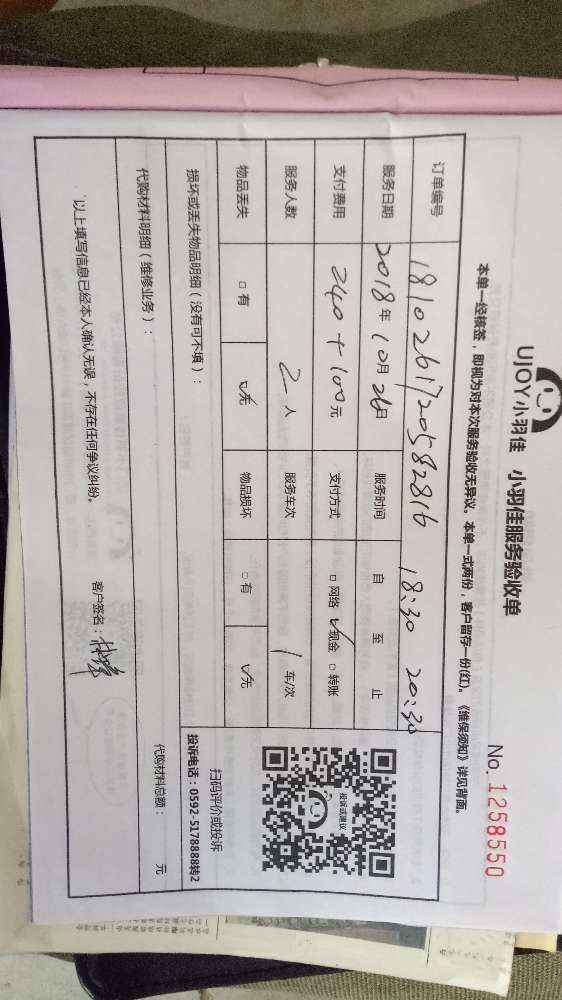 UJOY小羽佳 小羽佳服务验收单
No. 1258550
本单一经核签，即视为对本次服务验收无异议。本单一式两份，客户留存一份(红)。《维保须知》详见背面。
订单编号 1810261720582816
服务日期 2018年10月26日 服务时间 自 18:30 至 20:30 止
支付费用 240+100元 支付方式 □网络 ☑现金 □转账
服务人数 2人 服务车次 1车/次
物品丢失 □有 ☑无 物品损坏 □有 ☑无
损坏或丢失物品明细（没有可不填）：
投诉或建议
扫码评价或投诉
投诉电话：0592-5178888转2
代购材料明细（维修业务）：
代购材料总额： 元
以上填写信息已经本人确认无误，不存在任何争议纠纷。
客户签名：